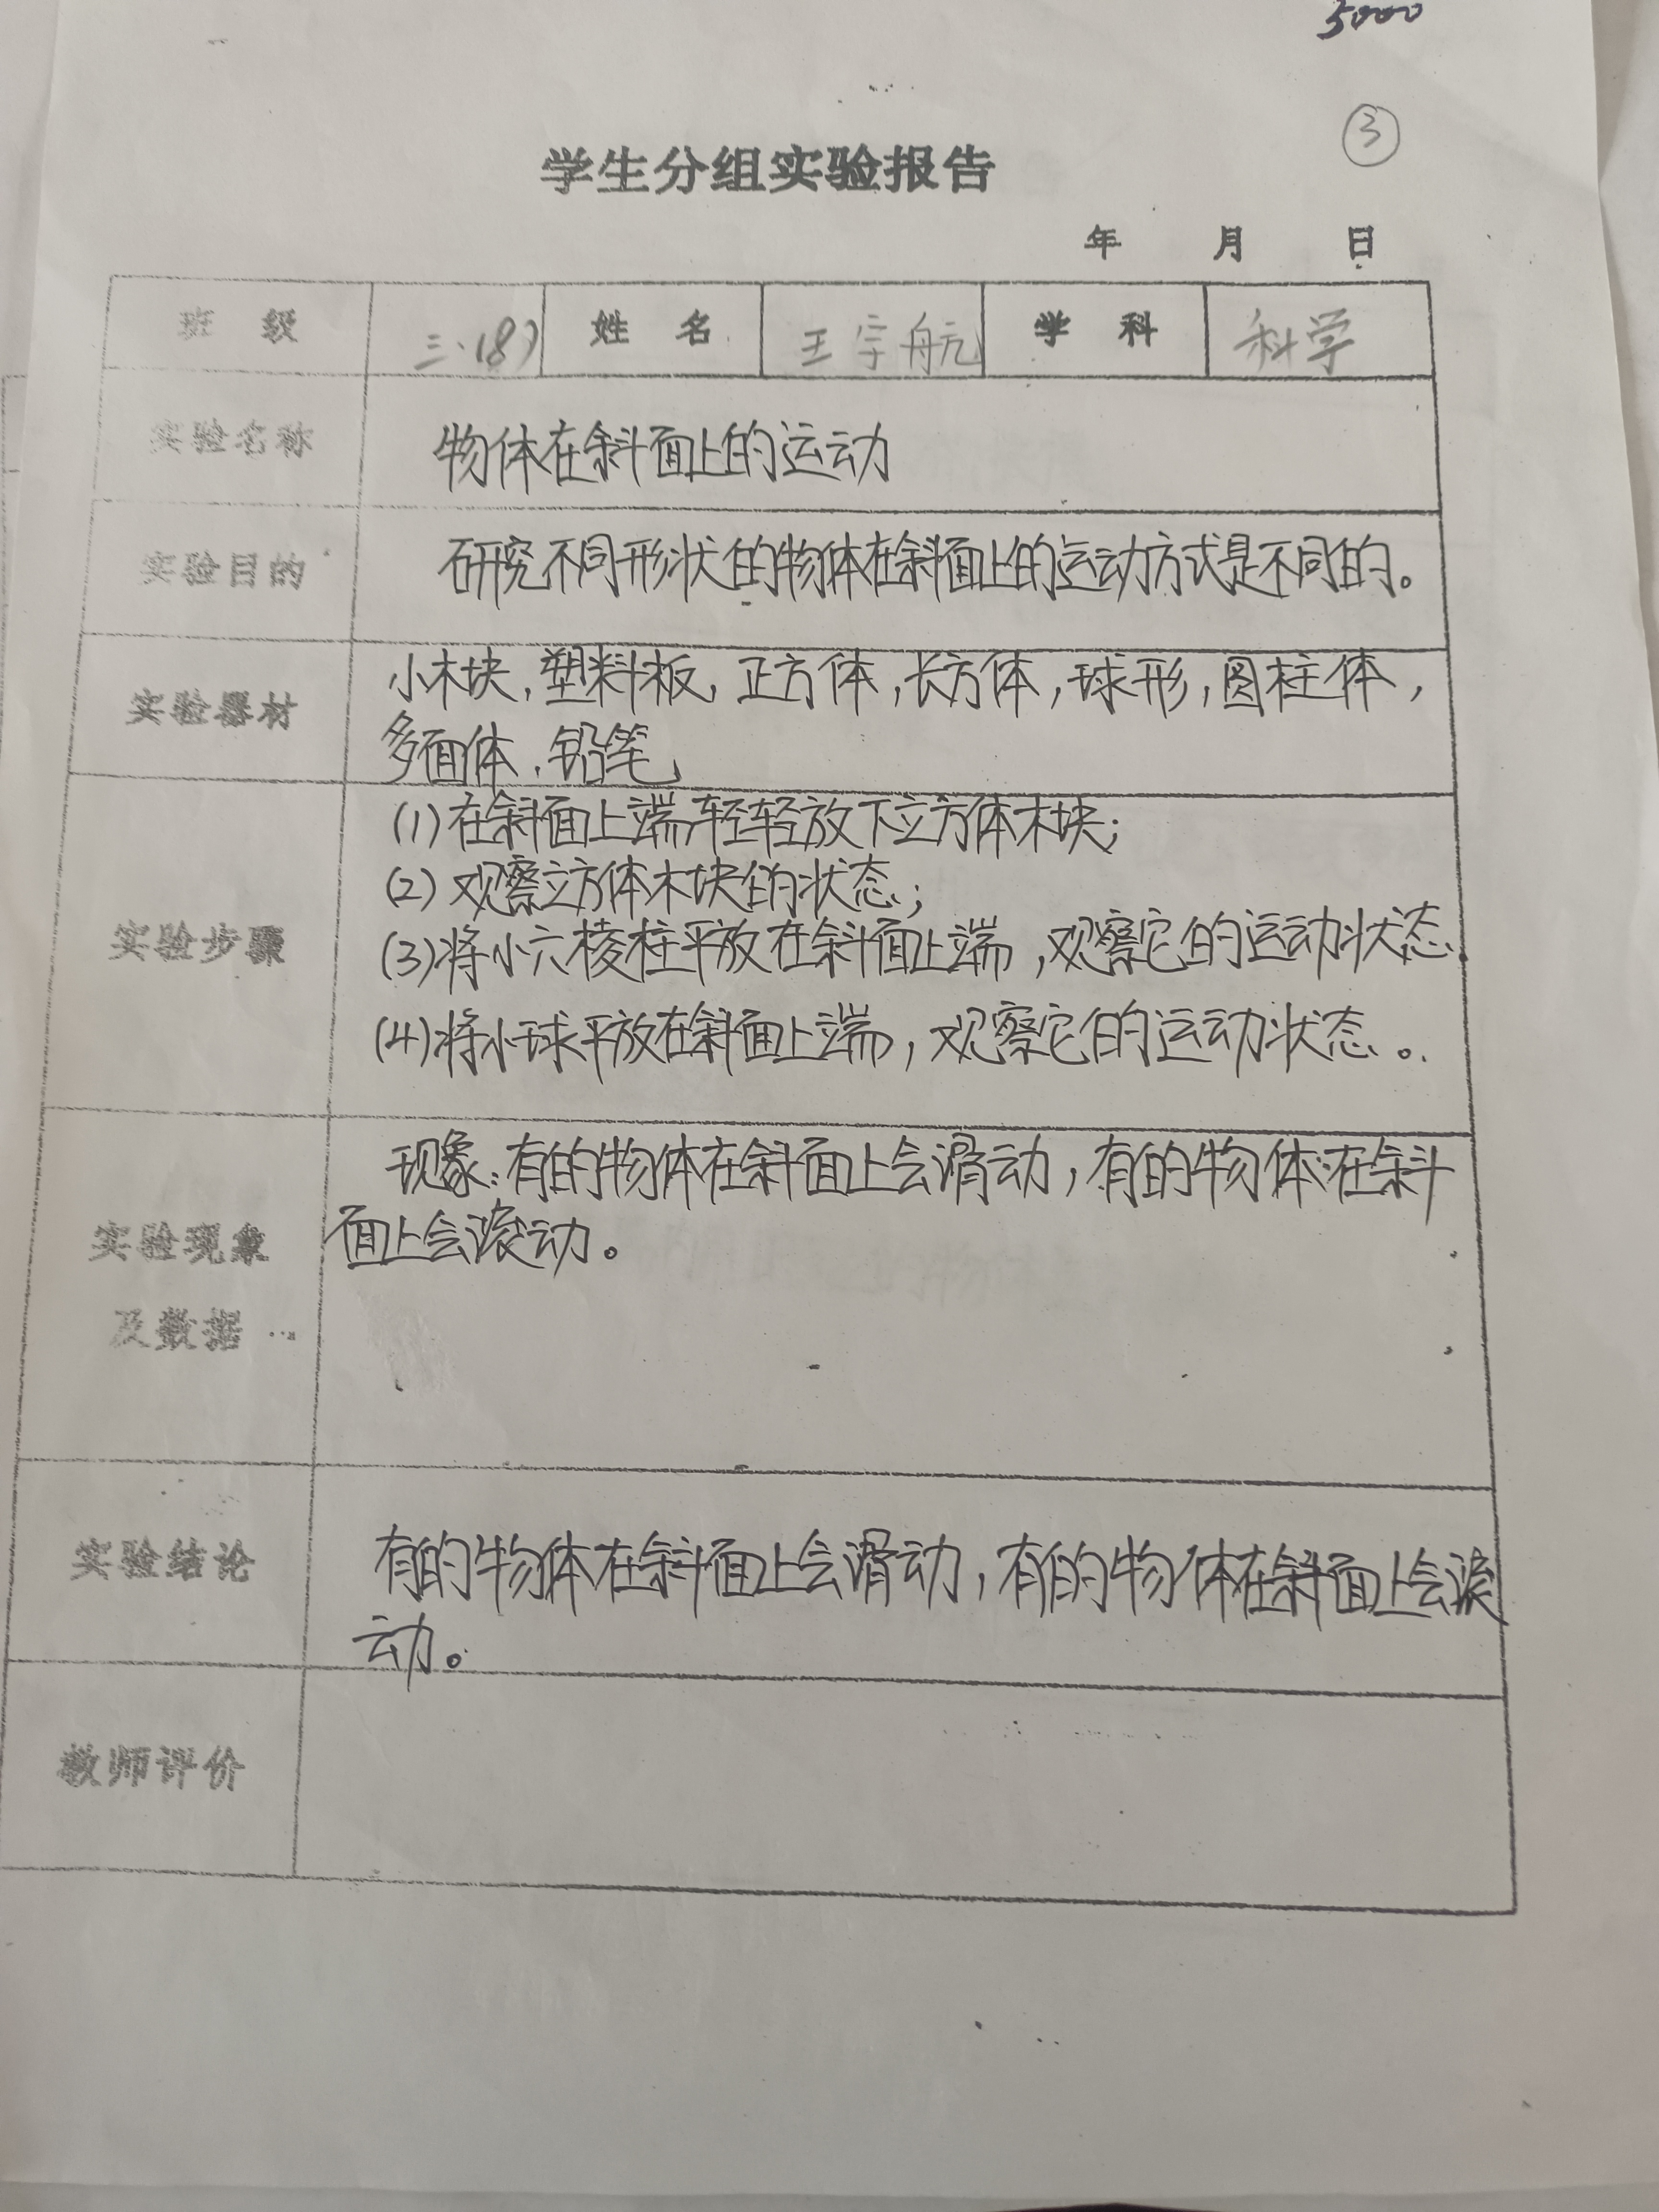 5000
③
学生分组实验报告
年 月 日
班 级 三.(8) 姓 名 王宇航 学 科 科学
实验名称 物体在斜面上的运动
实验目的 研究不同形状的物体在斜面上的运动方式是不同的。
实验器材 小木块,塑料板,正方体,长方体,球形,圆柱体,
多面体.铅笔
实验步骤
(1)在斜面上端轻轻放下立方体木块;
(2)观察立方体木块的状态;
(3)将小六棱柱平放在斜面上端,观察它的运动状态.
(4)将小球平放在斜面上端,观察它的运动状态。
实验现象
及数据
现象:有的物体在斜面上会滑动,有的物体在斜
面上会滚动。
实验结论 有的物体在斜面上会滑动,有的物体在斜面上会滚
动。
教师评价